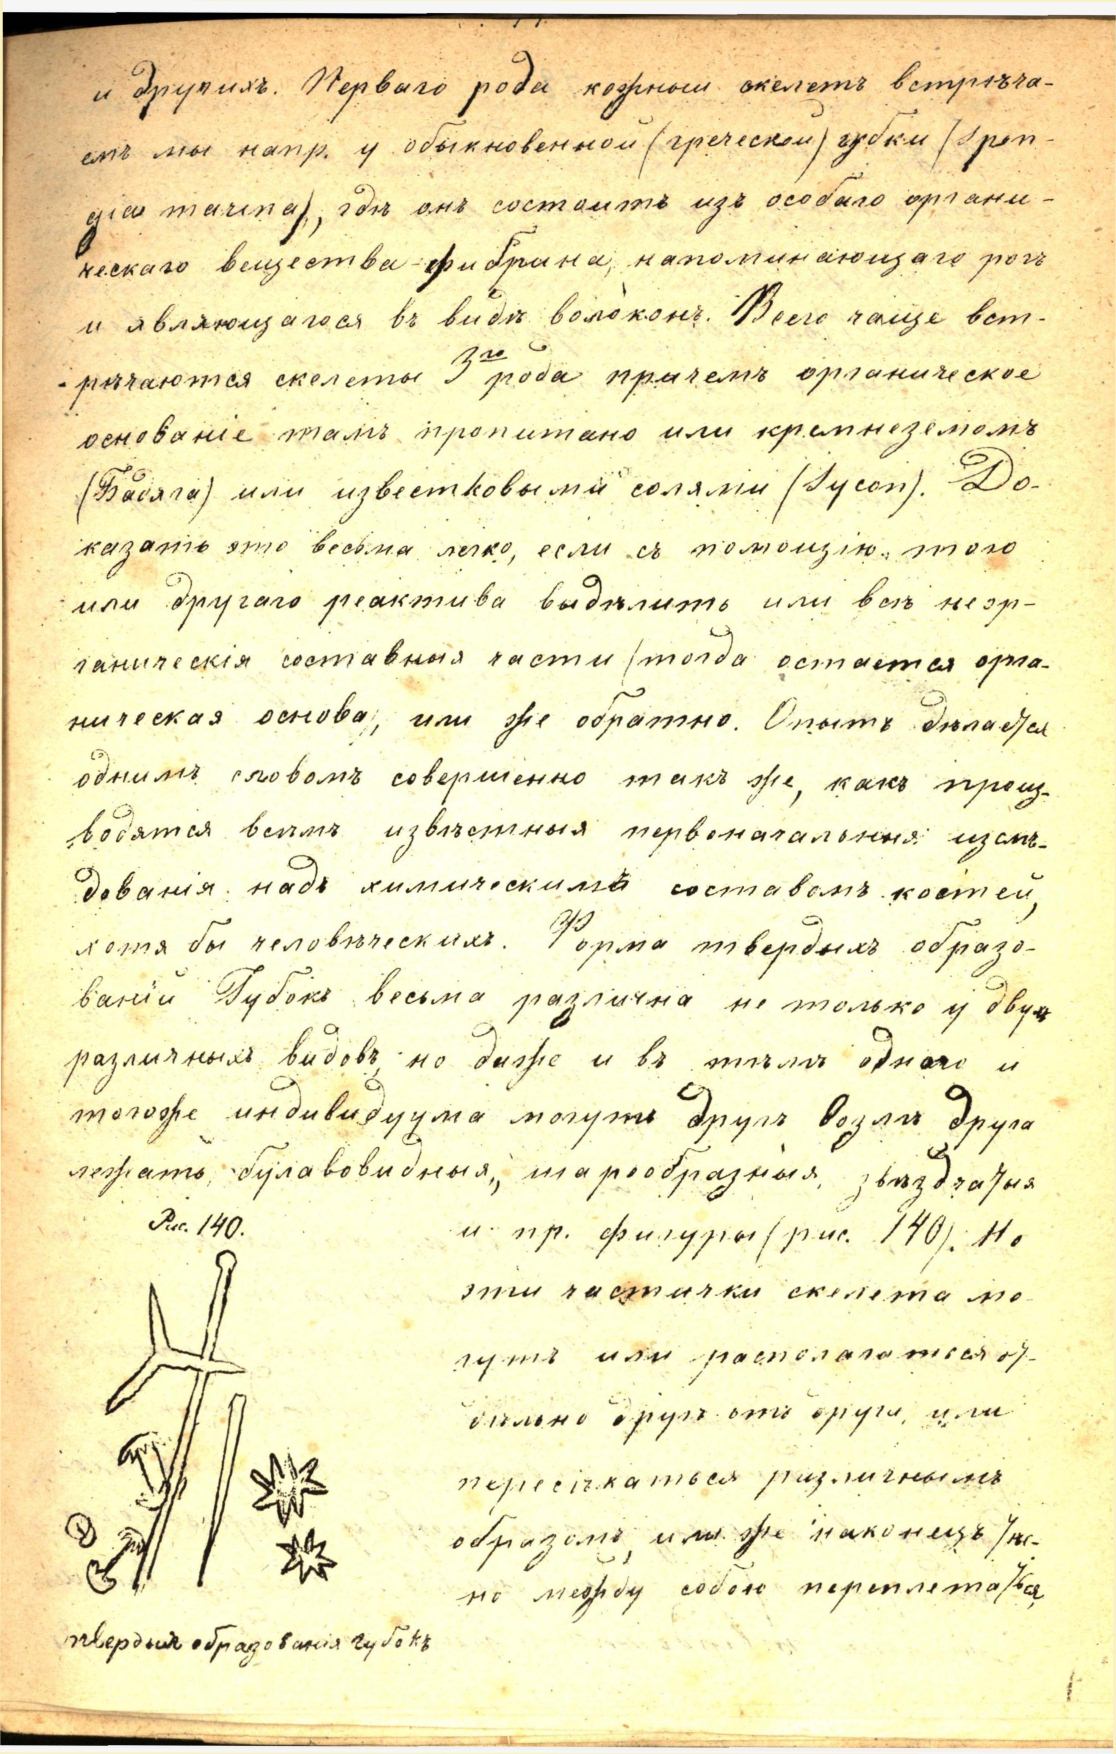 и другихъ. Перваго рода кожный скелетъ встрѣча-
емъ мы напр. у обыкновенной (греческой) губки (Spon-
gia marina), гдѣ онъ состоитъ изъ особаго органи-
ческаго вещества фибрина, напоминающаго рогъ
и являющагося въ видѣ волоконъ. Всего чаще вст-
рѣчаются скелеты 3го рода причемъ органическое
основаніе тамъ пропитано или кремнеземомъ
(Бадяга) или известковыми солями (Sycon). До-
казать это весьма легко, если съ помощію того
или другаго реактива выдѣлить или всѣ неор-
ганическія составныя части (тогда остается орга-
ническая основа), или же обратно. Опытъ дѣлается
однимъ словомъ совершенно такъ же, какъ произ-
водятся всѣмъ извѣстныя первоначальныя изслѣ-
дованія надъ химическимъ составомъ костей,
хотя бы человѣческихъ. Форма твердыхъ образо-
ваній Губокъ весьма различна не только у двухъ
различныхъ видовъ, но даже и въ тѣлѣ одного и
тогоже индивидуума могутъ другъ возлѣ друга
лежать булавовидныя, шарообразныя, звѣздчатыя
и пр. фигуры (рис. 140). Но
эти частички скелета мо-
гутъ или располагаться от-
дѣльно другъ отъ друга, или
пересѣкаться различнымъ
образомъ, или же наконецъ тѣс-
но между собою переплетаться,
Рис. 140.
твердыя образованія губокъ